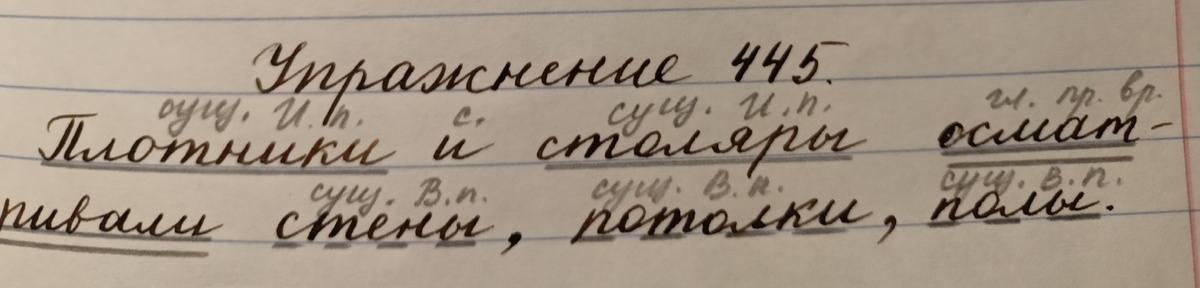 Упражнение 445.
сущ. И.п. с. сущ. И.п. гл. пр. вр.
Плотники и столяры осмат-
сущ. В.п. сущ. В.п. сущ. в.п.
ривали стены, потолки, полы.